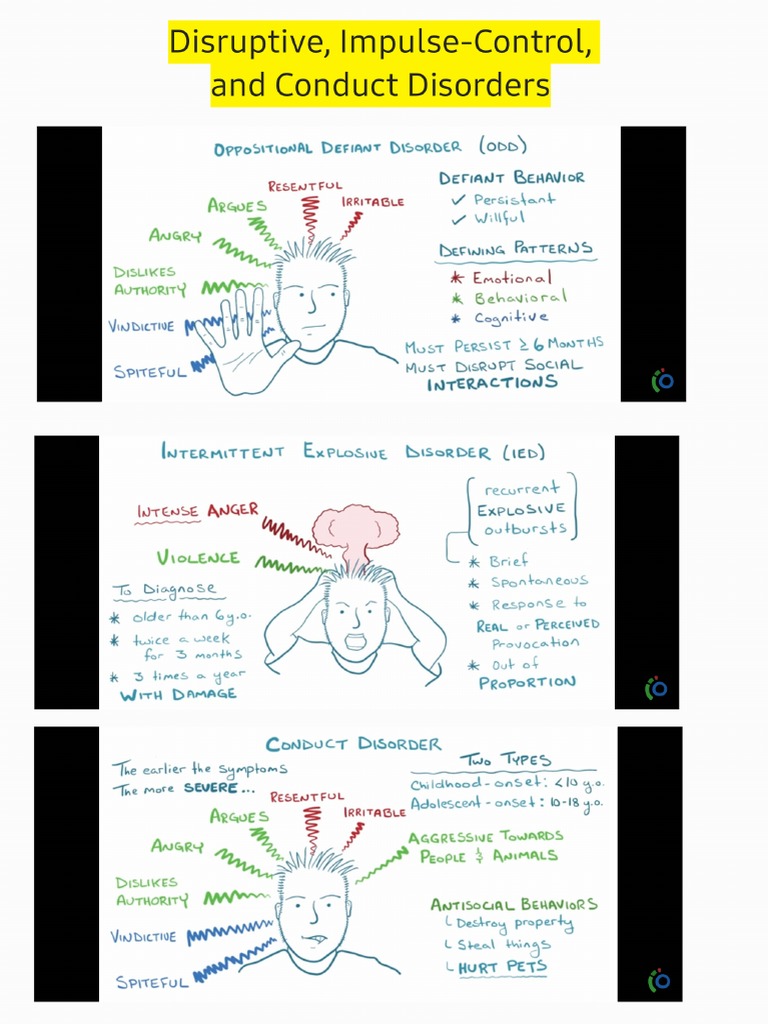 Disruptive, Impulse-Control,
and Conduct Disorders
OPPOSITIONAL DEFIANT DISORDER (ODD)
RESENTFUL
ARGUES
IRRITABLE
ANGRY
DISLIKES
AUTHORITY
VINDICTIVE
SPITEFUL
DEFIANT BEHAVIOR
✓ Persistant
✓ Willful
DEFINING PATTERNS
* Emotional
* Behavioral
* Cognitive
MUST PERSIST ≥ 6 MONTHS
MUST DISRUPT SOCIAL
INTERACTIONS
INTERMITTENT EXPLOSIVE DISORDER (IED)
INTENSE ANGER
VIOLENCE
To Diagnose
* older than 6 y.o.
* twice a week
for 3 months
* 3 times a year
WITH DAMAGE
recurrent
EXPLOSIVE
outbursts
* Brief
* Spontaneous
* Response to
REAL or PERCEIVED
Provocation
* Out of
PROPORTION
CONDUCT DISORDER
The earlier the symptoms
The more SEVERE...
RESENTFUL
ARGUES
IRRITABLE
ANGRY
DISLIKES
AUTHORITY
VINDICTIVE
SPITEFUL
TWO TYPES
Childhood-onset: <10 y.o.
Adolescent-onset: 10-18 y.o.
AGGRESSIVE TOWARDS
PEOPLE & ANIMALS
ANTISOCIAL BEHAVIORS
Destroy property
Steal things
HURT PETS